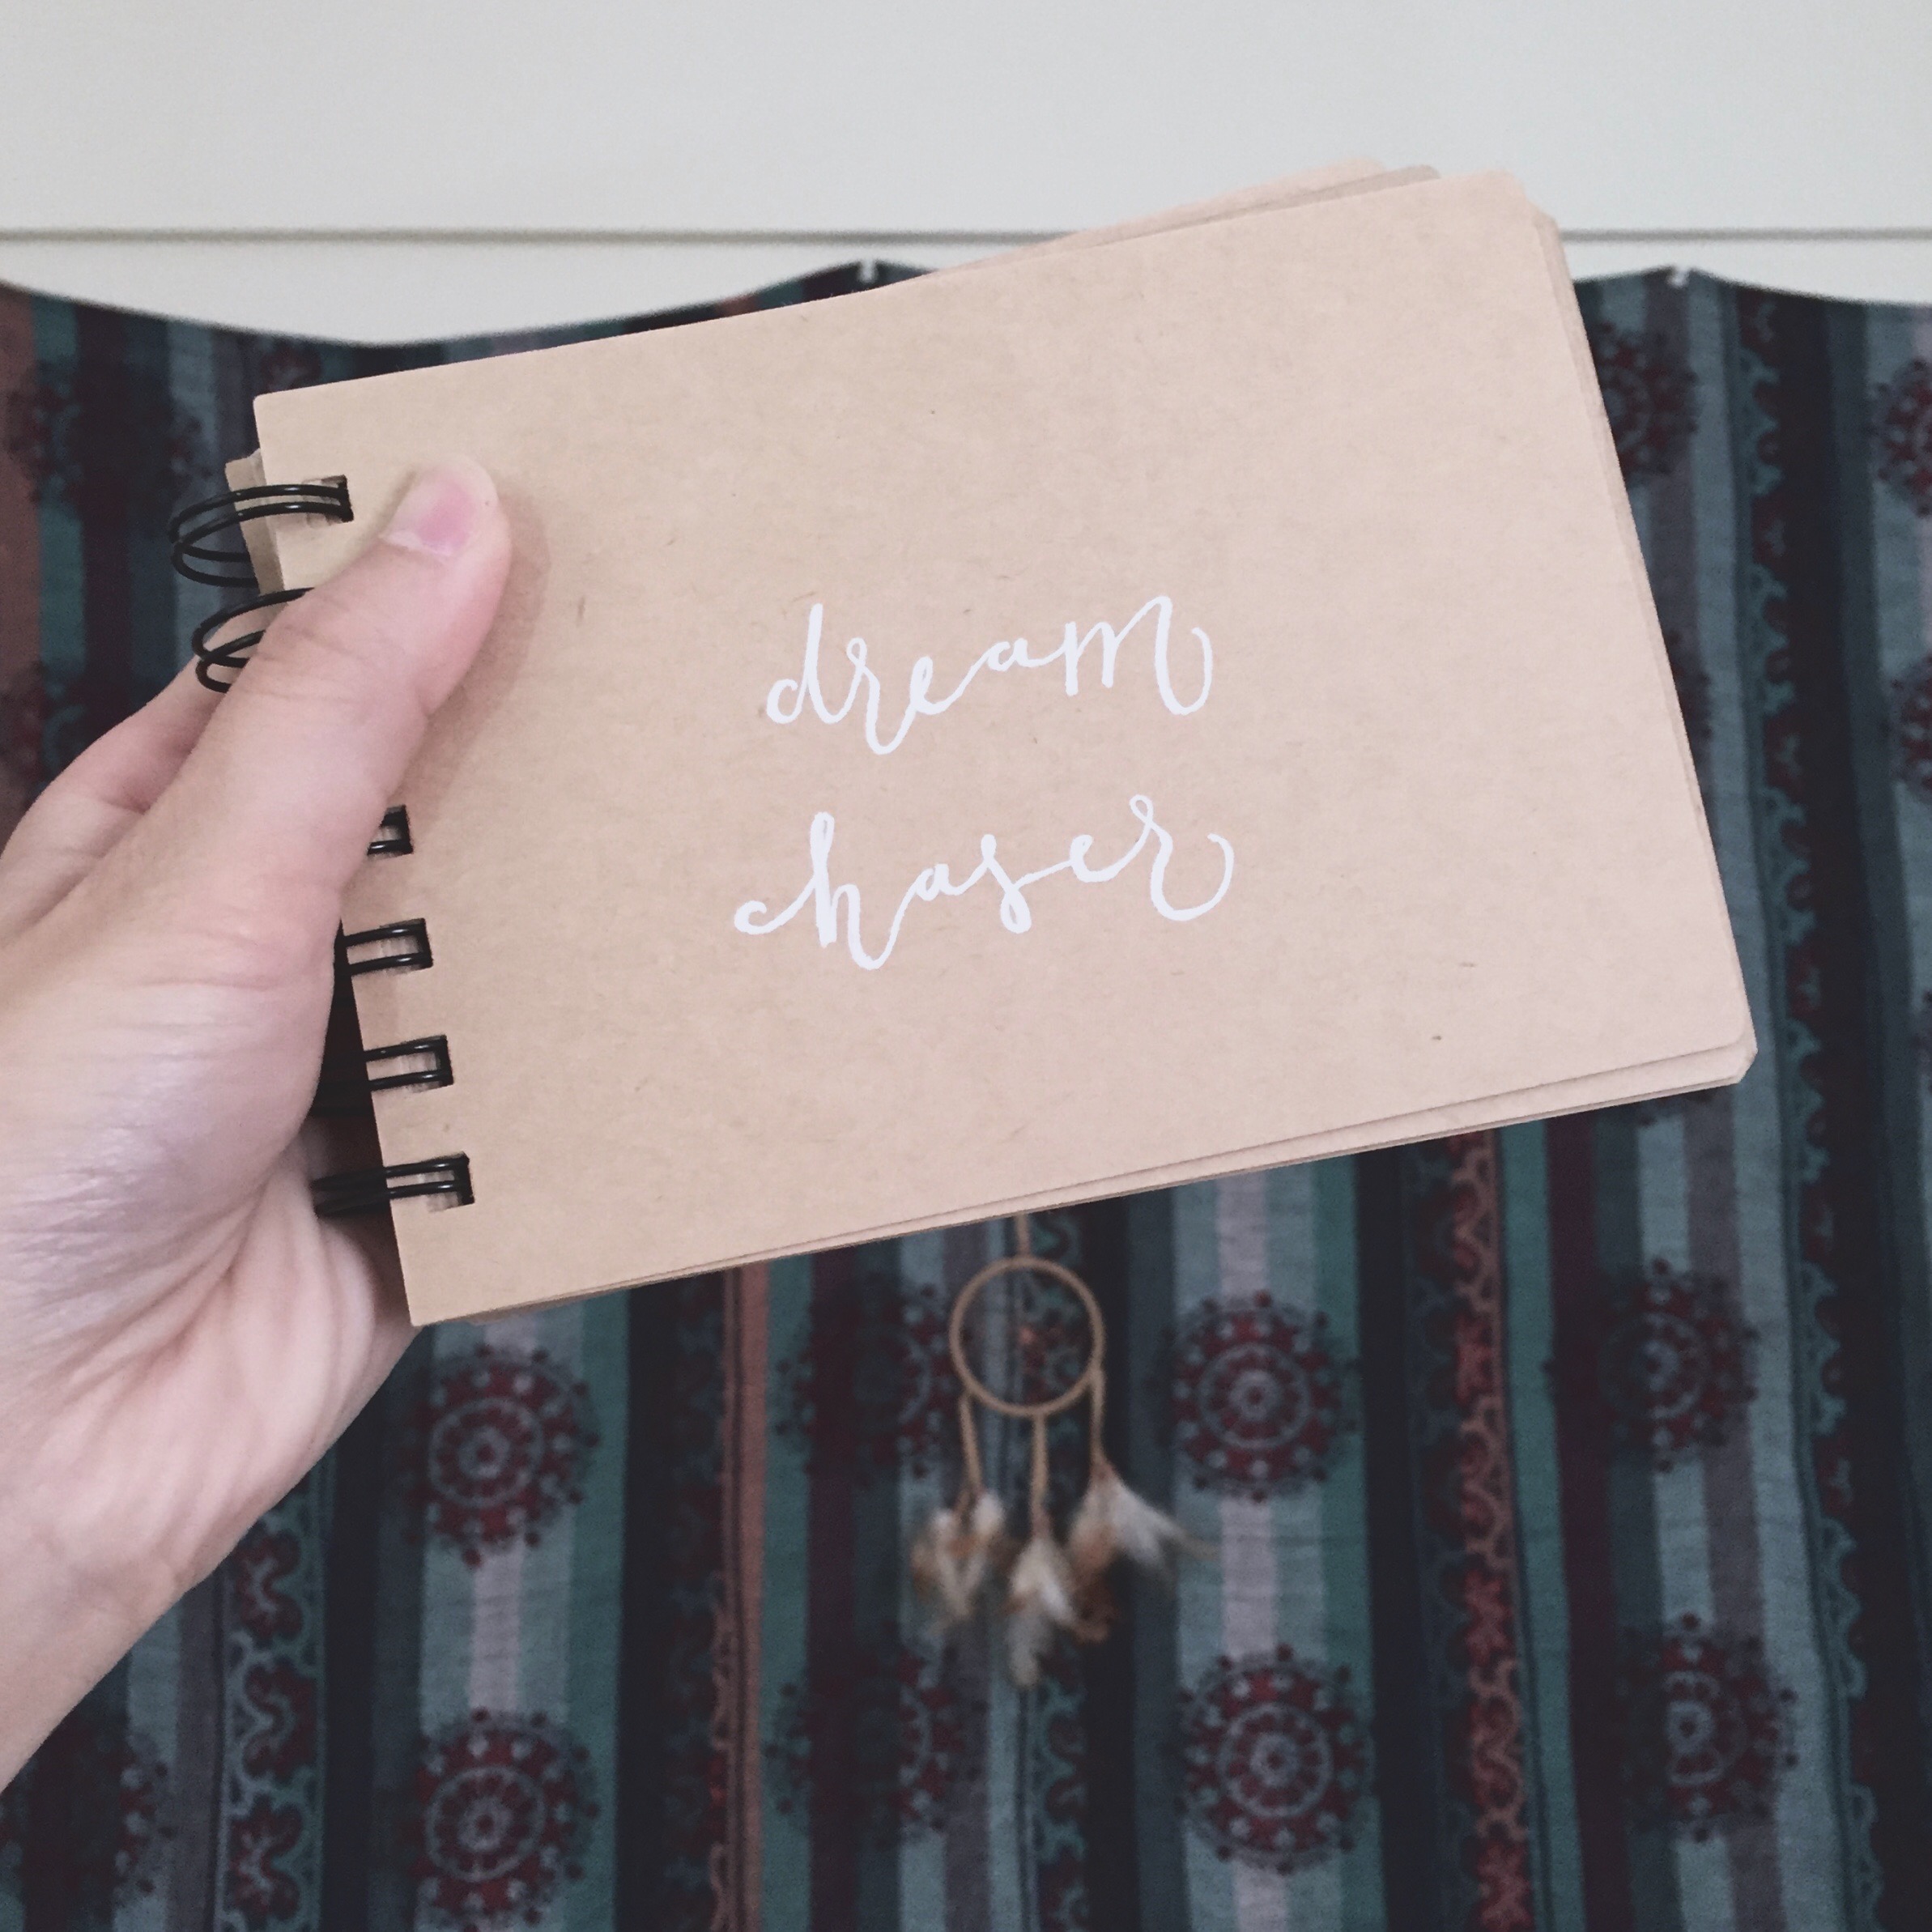 dream
chaser